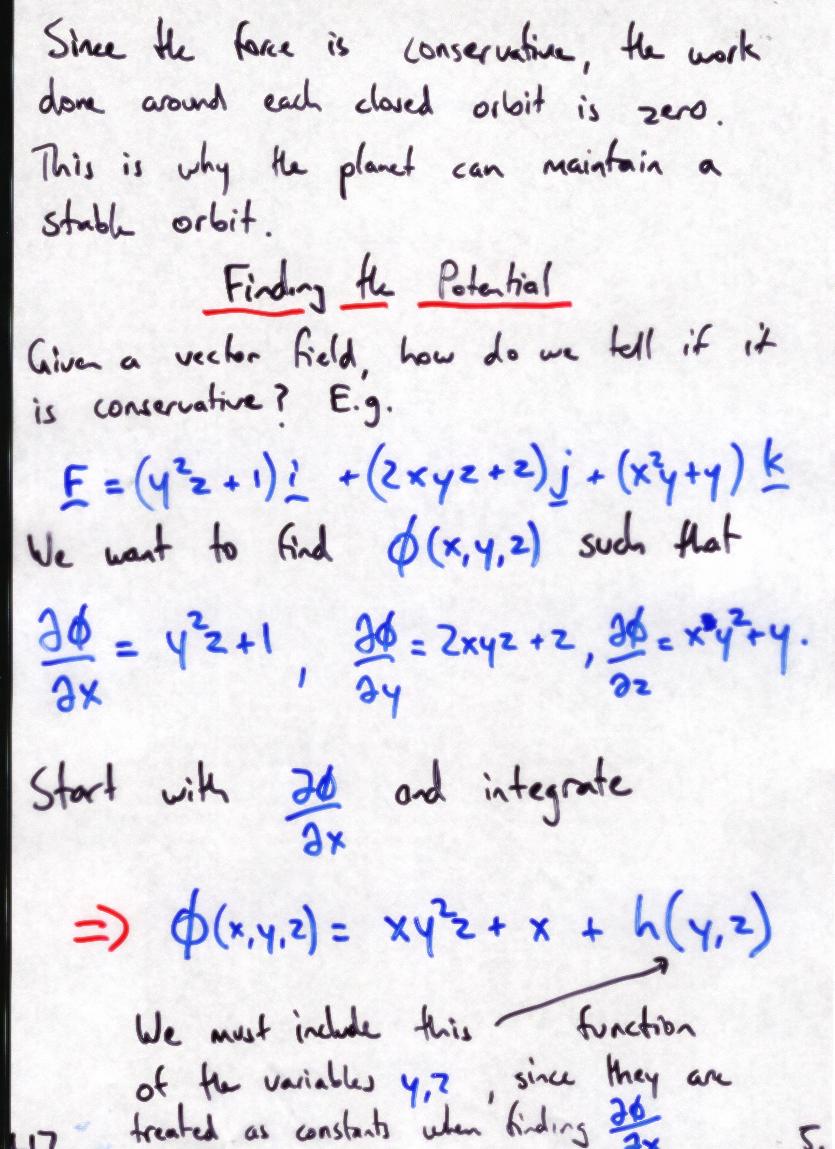 Since the force is conservative, the work
done around each closed orbit is zero.
This is why the planet can maintain a
stable orbit.
Finding the Potential
Given a vector field, how do we tell if it
is conservative? E.g.
F = (y²z + 1) i + (2xyz + z) j + (x²y + y) k
We want to find ϕ(x,y,z) such that
∂ϕ/∂x = y²z + 1, ∂ϕ/∂y = 2xyz + z, ∂ϕ/∂z = xy² + y.
Start with ∂ϕ/∂x and integrate
⇒ ϕ(x,y,z) = xy²z + x + h(y,z)
We must include this function
of the variables y,z, since they are
treated as constants when finding ∂ϕ/∂x
5.